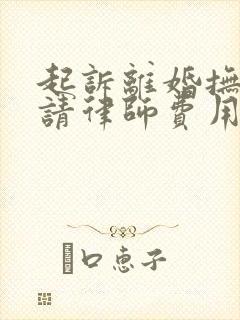 起訴離婚撫
請律師費用
口恵子